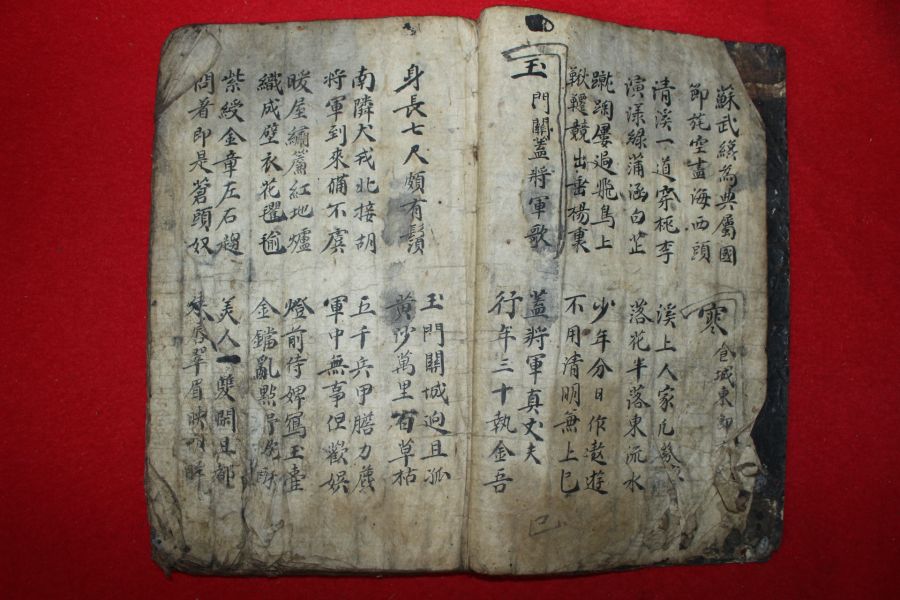 蘇武纔為典屬國
節旄空盡海西頭
寒食城東即
清溪一道穿桃李
演漾綠蒲涵白芷
溪上人家凡幾
落花半落東流水
蹴踘屢過飛鳥上
鞦韆競出垂楊裏
少年分日作遨遊
不用清明無上巳
巳
玉門關蓋將軍歌
蓋將軍真丈夫
行年三十執金吾
身長七尺頗有鬚
玉門關城迥且孤
黃沙萬里百草枯
南隣犬戎北接胡
將軍到來備不虞
五千兵甲膽力麤
軍中無事但歡娛
暖屋繡簾紅地爐
織成壁衣花氍毹
燈前侍婢瀉玉壺
金鐺亂點野酡酥
紫綬金章左石趨
問者即是蒼頭奴
美人一雙閑且都
朱唇翠眉映明